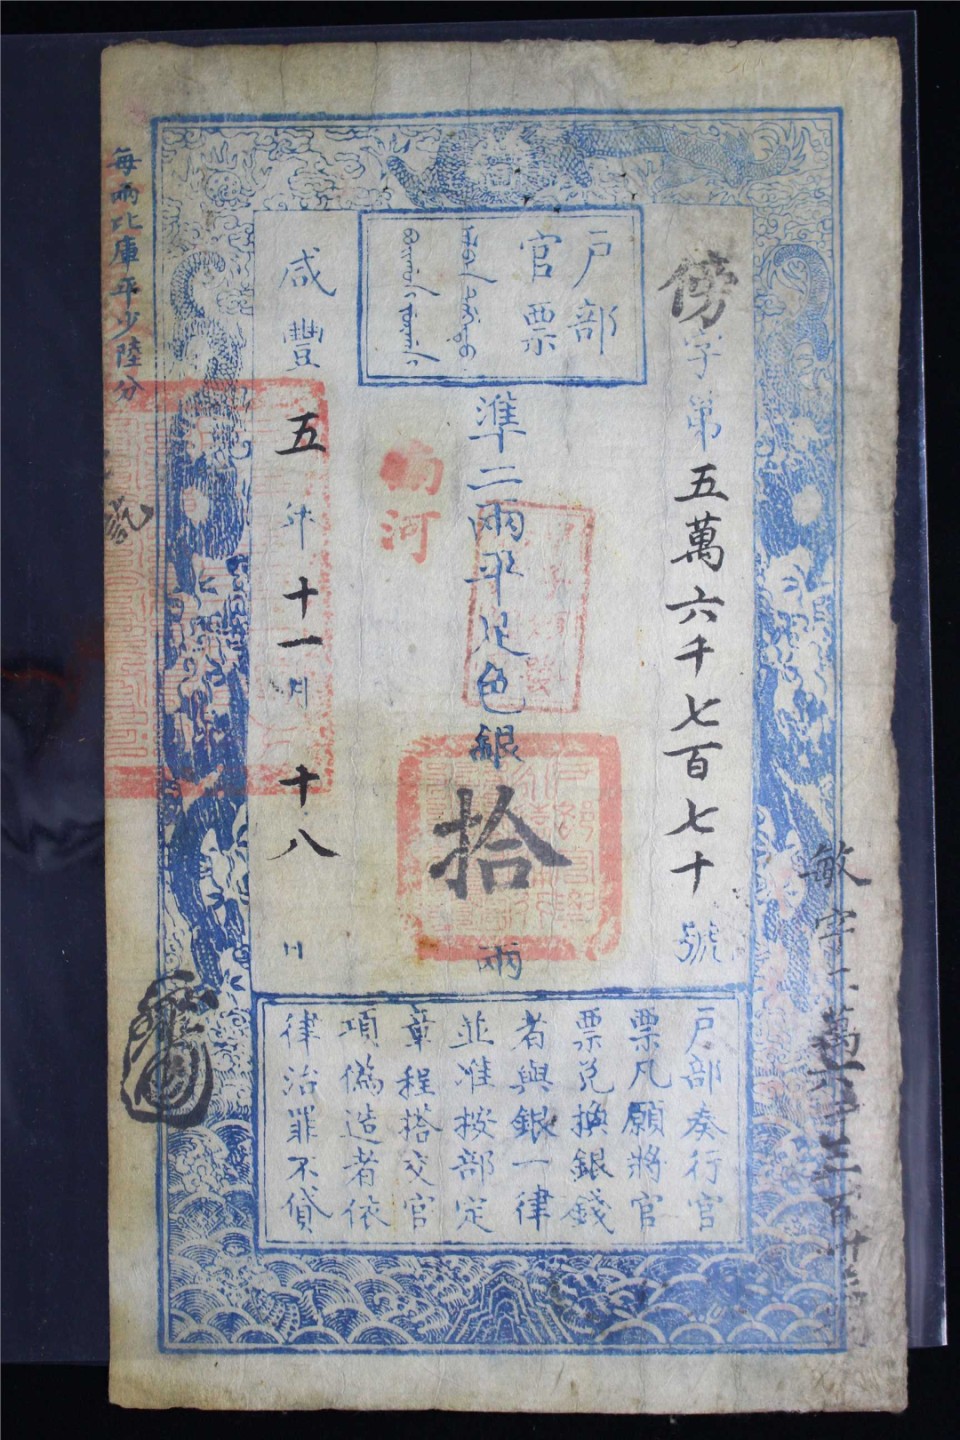 戶部
官票
傍字第五萬六千七百七十號
準二兩平足色銀拾兩
南河
咸豐五年十一月十八日
每兩比庫平少陸分
戶部奏行官
票凡願將官
票兌換銀錢
者與銀一律
並准按部定
章程搭交官
項偽造者依
律治罪不貸
敏字二萬六千三百廿